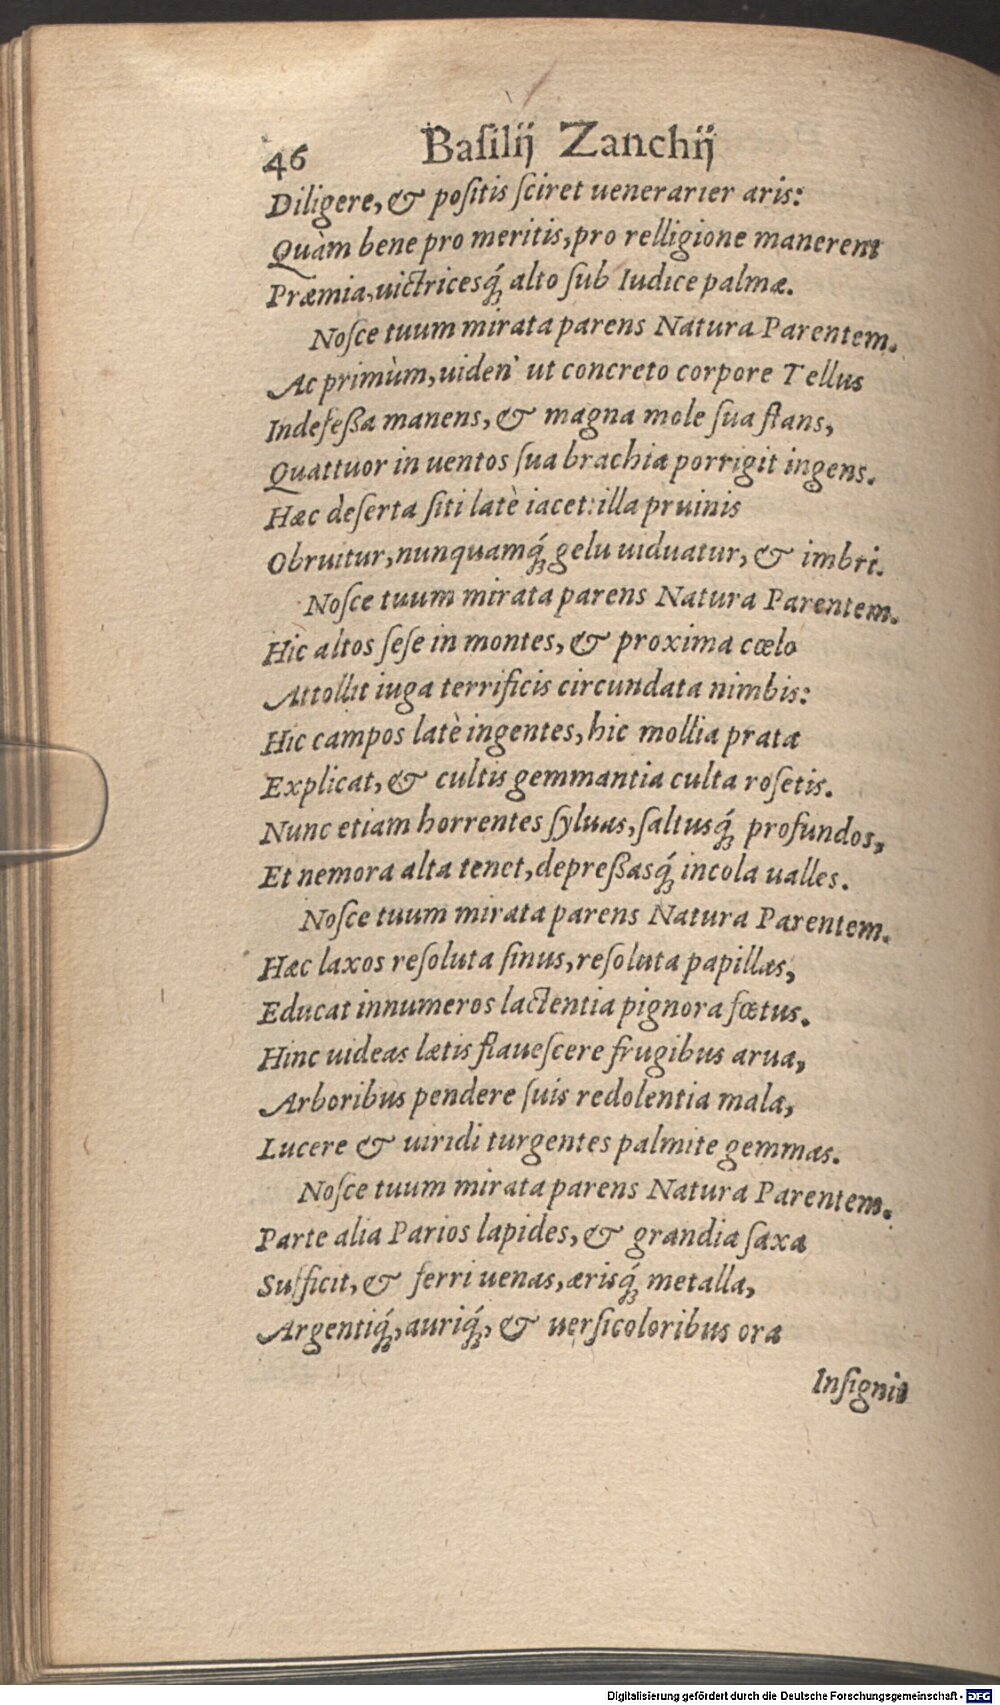 46 Baſilij Zanchij
Diligere, & poſitis ſciret uenerarier aris:
Quàm bene pro meritis, pro relligione manerent
Præmia, uictricesq́; alto ſub Iudice palmæ.
Noſce tuum mirata parens Natura Parentem.
Ac primùm, uiden' ut concreto corpore Tellus
Indefeßa manens, & magna mole ſua ſtans,
Quattuor in uentos ſua brachia porrigit ingens.
Hæc deſerta ſiti latè iacet: illa pruinis
Obruitur, nunquamq́; gelu uiduatur, & imbri.
Noſce tuum mirata parens Natura Parentem.
Hic altos ſeſe in montes, & proxima cœlo
Attollit iuga terrificis circundata nimbis:
Hic campos latè ingentes, hic mollia prata
Explicat, & cultis gemmantia culta roſetis.
Nunc etiam horrentes ſyluas, ſaltusq́; profundos,
Et nemora alta tenet, depreßasq́; incola ualles.
Noſce tuum mirata parens Natura Parentem.
Hæc laxos reſoluta ſinus, reſoluta papillas,
Educat innumeros lactentia pignora fœtus.
Hinc uideas lætis flaueſcere frugibus arua,
Arboribus pendere ſuis redolentia mala,
Lucere & uiridi turgentes palmite gemmas.
Noſce tuum mirata parens Natura Parentem.
Parte alia Parios lapides, & grandia ſaxa
Sufficit, & ferri uenas, ærisq́; metalla,
Argentiq́;, auriq́;, & uerſicoloribus ora
Inſignis
Digitalisierung gefördert durch die Deutsche Forschungsgemeinschaft - DFG